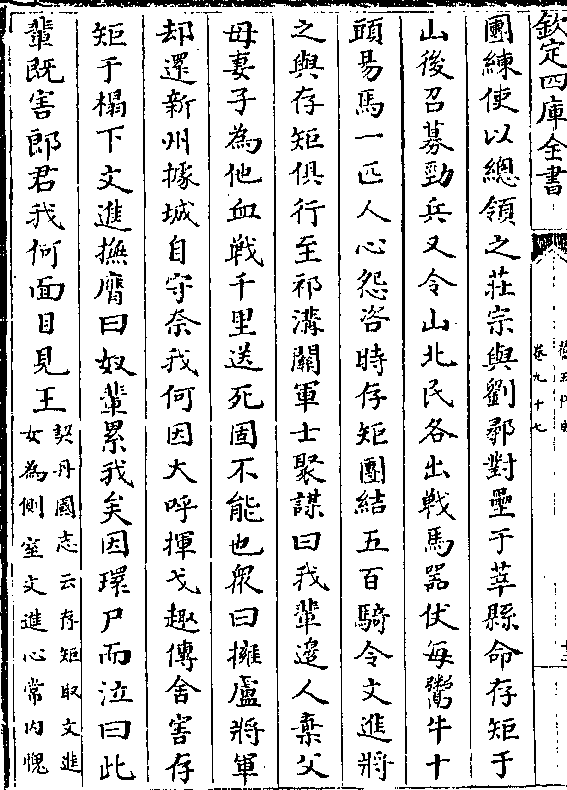 欽定四庫全書
卷九十七
團練使以總領之莊宗與劉鄩對壘于莘縣命存矩于
山後召募勁兵又令山北民各出戰馬器仗每鬻牛十
頭易馬一匹人心怨咨時存矩團結五百騎令文進將
之與存矩俱行至祁溝關軍士聚謀曰我輩邊人棄父
母妻子為他血戰千里送死固不能也衆曰擁盧將軍
却還新州據城自守奈我何因大呼揮戈趣傳舍害存
矩于榻下文進撫膺曰奴輩累我矣因環尸而泣曰此
輩既害郎君我何面目見王
契丹國志云存矩取文進
女為側室文進心常内愧